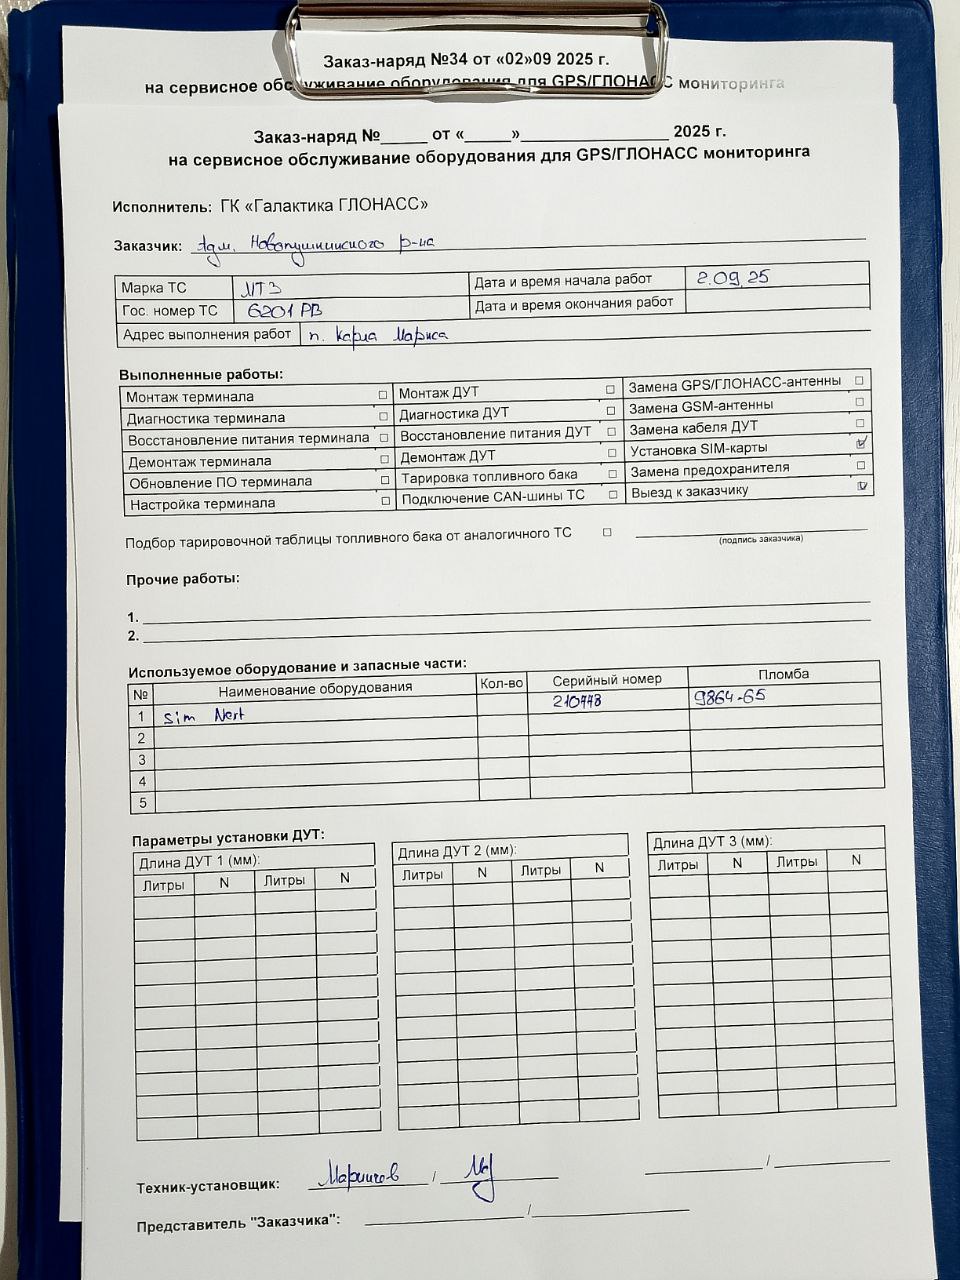 Заказ-наряд №34 от «02»09 2025 г.
на сервисное обслуживание оборудования для GPS/ГЛОНАСС мониторинга
Заказ-наряд №_____ от «_____»________________ 2025 г.
на сервисное обслуживание оборудования для GPS/ГЛОНАСС мониторинга
Исполнитель: ГК «Галактика ГЛОНАСС»
Заказчик: Адм. р-на
Марка ТС МТЗ Дата и время начала работ 2.09.25
Гос. номер ТС 6201 РВ Дата и время окончания работ
Адрес выполнения работ п. Карла Маркса
Выполненные работы:
Монтаж терминала □ Монтаж ДУТ □ Замена GPS/ГЛОНАСС-антенны □
Диагностика терминала □ Диагностика ДУТ □ Замена GSM-антенны □
Восстановление питания терминала □ Восстановление питания ДУТ □ Замена кабеля ДУТ □
Демонтаж терминала □ Демонтаж ДУТ □ Установка SIM-карты ☑
Обновление ПО терминала □ Тарировка топливного бака □ Замена предохранителя □
Настройка терминала □ Подключение CAN-шины ТС □ Выезд к заказчику ☑
Подбор тарировочной таблицы топливного бака от аналогичного ТС □
(подпись заказчика)
Прочие работы:
1.
2.
Используемое оборудование и запасные части:
№ Наименование оборудования Кол-во Серийный номер Пломба
1 sim 9864-65
2
3
4
5
Параметры установки ДУТ:
Длина ДУТ 1 (мм): Длина ДУТ 2 (мм): Длина ДУТ 3 (мм):
Литры N Литры N Литры N Литры N Литры N Литры N
Техник-установщик: / /
Представитель "Заказчика": /